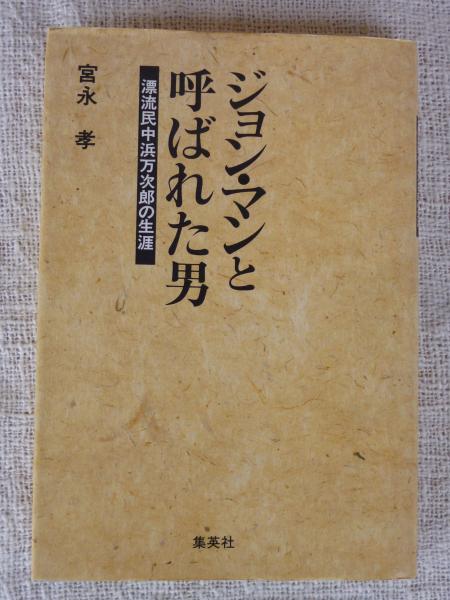 ジョン・マンと
呼ばれた男
漂流民中浜万次郎の生涯
宮永 孝
集英社